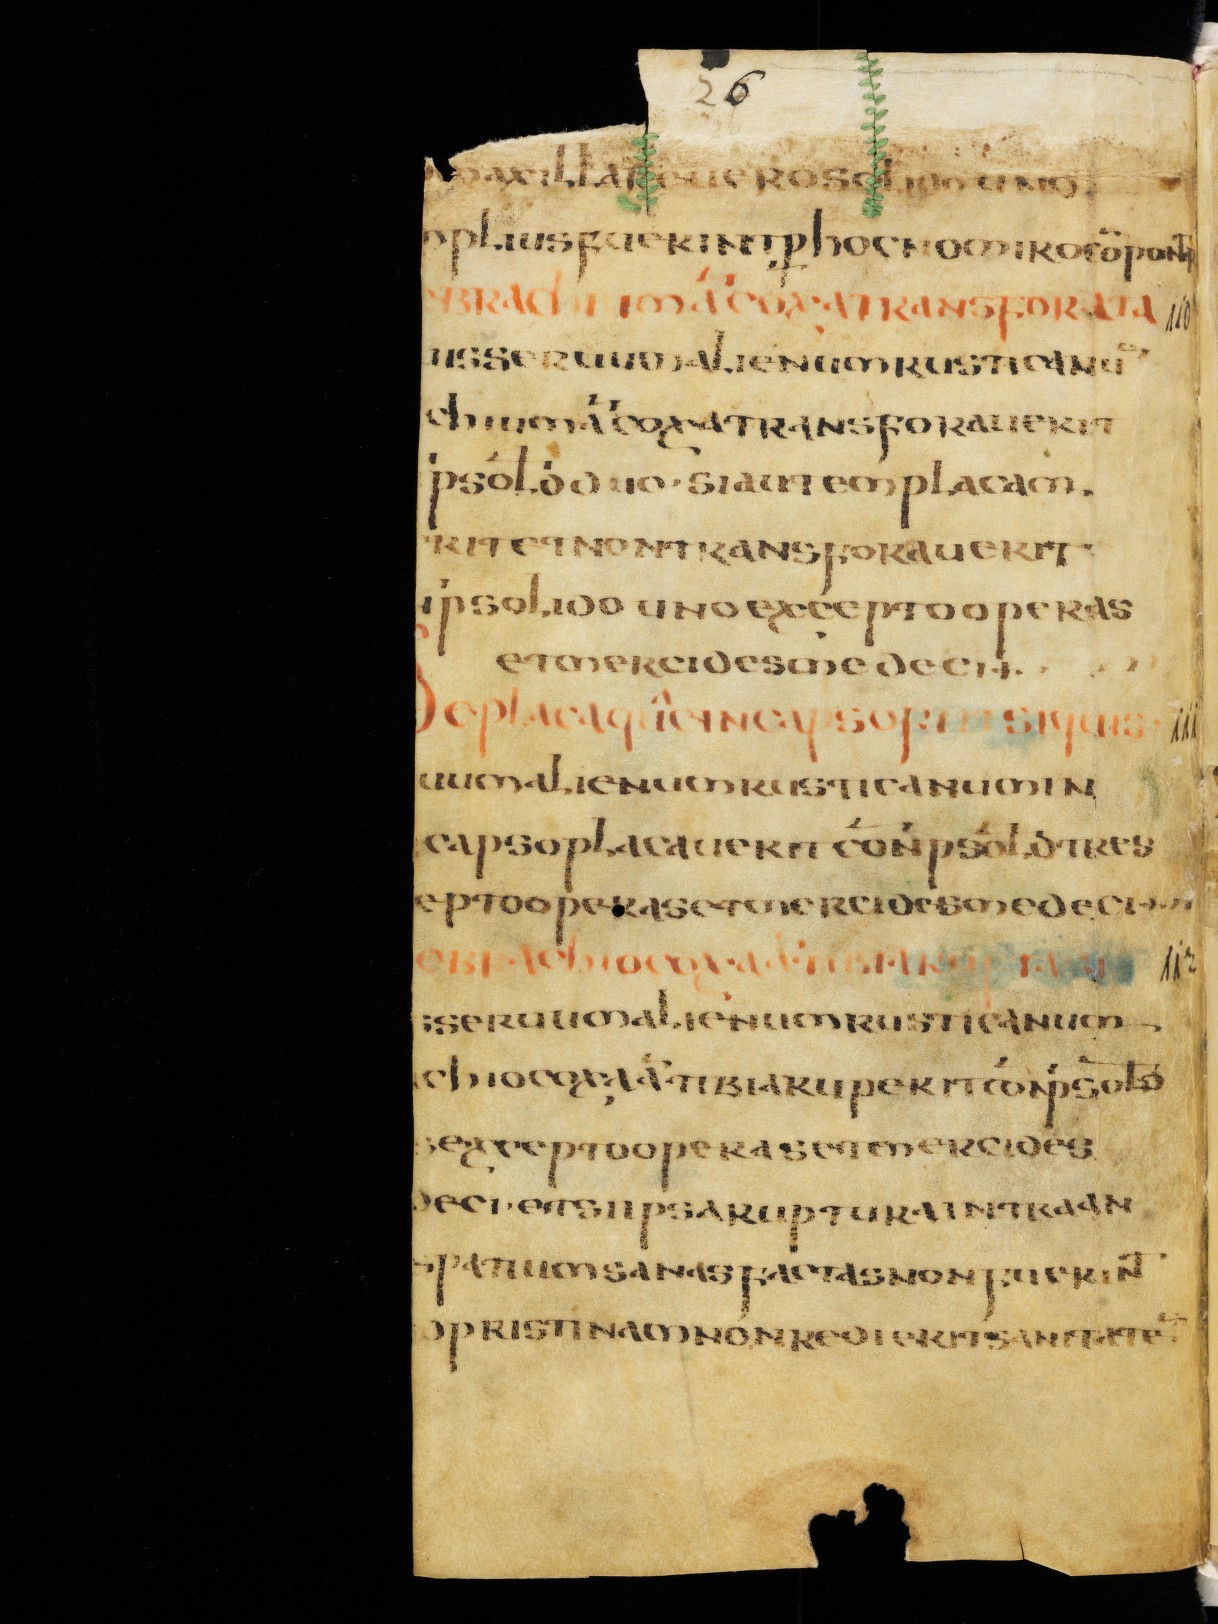 26
maxillare uero solido uno
pliusfuerintp̄hocnomīkoc̄oponāt
ebrachiumā coxatransforata 110
uisseruumalienumrusticanū
chiumā coxatransforauerit
ipsoł.d̄duo·siautemplacam.
ritetnontransforauerit
ipsolido unoexceeptooperas
etmercidesmedeci·
deplacaquēincapsofit siquis· 111
uumalienumrusticanumin
capsoplacauerit c̄oñpsoł.d̄tres
eptooperasetmercidesmedeci
ebrachiocoxaā tibiarupta si 112
sseruumalienumrusticanum
chiocoxaā tibiaruperitcōñpsoł d̄
sexceeptooperasetmercides
deci·etsiipsarupturaintraan
spatiumsanasfactasnonfuerint̄
dpristinamnonredieritsanitatē